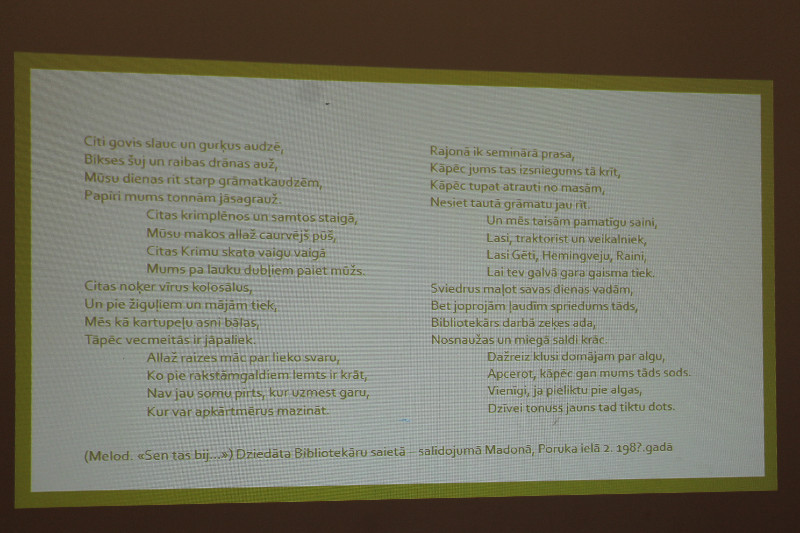 Citi govis slauc un gurķus audzē,
Bikses šuj un raibas drānas auž,
Mūsu dienas rit starp grāmatkaudzēm,
Papīri mums tonnām jāsagrauž.
Citas krimplēnos un samtos staigā,
Mūsu makos allaž caurvējš pūš,
Citas Krimu skata vaigu vaigā
Mums pa lauku dubļiem paiet mūžs.
Citas noķer vīrus kolosālus,
Un pie žiguļiem un mājām tiek,
Mēs kā kartupeļu asni bālas,
Tāpēc vecmeitās ir jāpaliek.
Allaž raizes māc par lieko svaru,
Ko pie rakstāmgaldiem lemts ir krāt,
Nav jau somu pirts, kur uzmest garu,
Kur var apkārtmērus mazināt.
Rajonā ik seminārā prasa,
Kāpēc jums tas izsniegums tā krīt,
Kāpēc tupat atrauti no masām,
Nesiet tautā grāmatu jau rīt.
Un mēs taisām pamatīgu saini,
Lasi, traktorist un veikalniek,
Lasi Gēti, Hemingveju, Raini,
Lai tev galvā gara gaisma tiek.
Sviedrus maļot savas dienas vadām,
Bet joprojām ļaudīm spriedums tāds,
Bibliotekārs darbā zeķes ada,
Nosnaužas un miegā saldi krāc.
Dažreiz klusi domājam par algu,
Apcerot, kāpēc gan mums tāds sods.
Vienīgi, ja pieliktu pie algas,
Dzīvei tonuss jauns tad tiktu dots.
(Melod. «Sen tas bij...») Dziedāta Bibliotekāru saietā – salidojumā Madonā, Poruka ielā 2. 198?.gadā